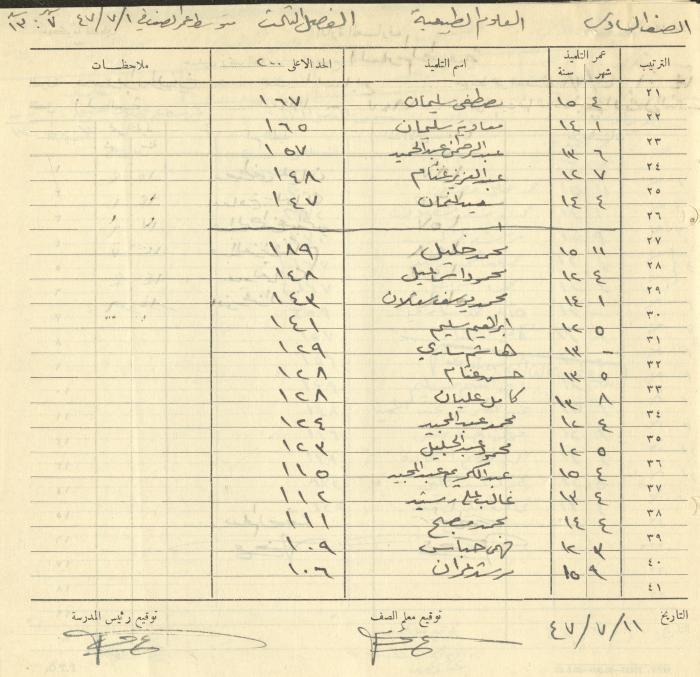 الصف السادس العلوم الطبيعية الفصل الثالث متوسط عمر الصف في ٤٧/٧/١ ٧ : ١٣
الترتيب عمر التلميذ شهر سنة اسم التلميذ الحد الاعلى ٢٠٠ ملاحظات
٢١ ٤ ١٥ مصطفى سليمان ١٦٧
٢٢ ١ ١٤ معاوية سليمان ١٦٥
٢٣ ٦ ١٣ عبد الرحمن عبد الحميد ١٥٧
٢٤ ٧ ١٢ عبد العزيز غنام ١٤٨
٢٥ ٤ ١٤ ١٤٧
٢٦
٢٧ ١١ ١٥ محمد خليل ١٨٩
٢٨ ٤ ١٢ محمود اسماعيل ١٤٨
٢٩ ١ ١٤ محمد يوسف ١٤٣
٣٠ ٥ ١٢ ابراهيم سليم ١٤١
٣١ - ١٣ هاشم ساري ١٢٩
٣٢ ٥ ١٣ حسن غنام ١٢٨
٣٣ ٨ ١٣ كامل عليان ١٢٨
٣٤ ٤ ١٢ محمد عبد المجيد ١٢٤
٣٥ ٥ ١٢ محمود عبد الجليل ١٢٣
٣٦ ٤ ١٥ عبد الكريم عبد المجيد ١١٥
٣٧ ٤ ١٣ غالب علي رشيد ١١٢
٣٨ ٤ ١٤ محمد مصلح ١١١
٣٩ ٣ ١٢ ١٠٩
٤٠ ٩ ١٥ ١٠٦
٤١
التاريخ ٤٧/٧/١١ توقيع معلم الصف توقيع رئيس المدرسة